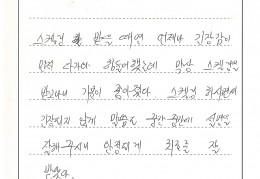 스케링 을 받을 때면 언제나 긴장감이
먼저 다가와 힘들어했는데 막상 스케링을
받고나니 기분이 좋아졌다. 스케링 하시면서
긴장되지 않게 말씀도 중간중간에 설명을
잘해주셔서 안정되게 치료를 잘
받았다.